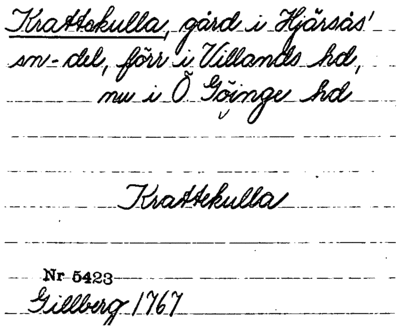 Krattskulla, gård i Hjärsås'
sn-del, förr i Villands hd,
nu i Ö Göinge hd
Krattekulla
Nr 5423
Gillberg 1767